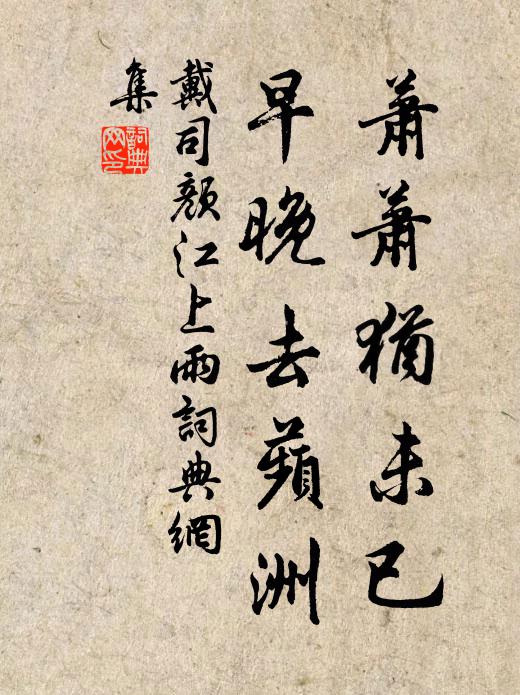 蕭蕭猶未已
早晚去蘋洲
戴司顏江上雨詞典網
集
詞典
网印